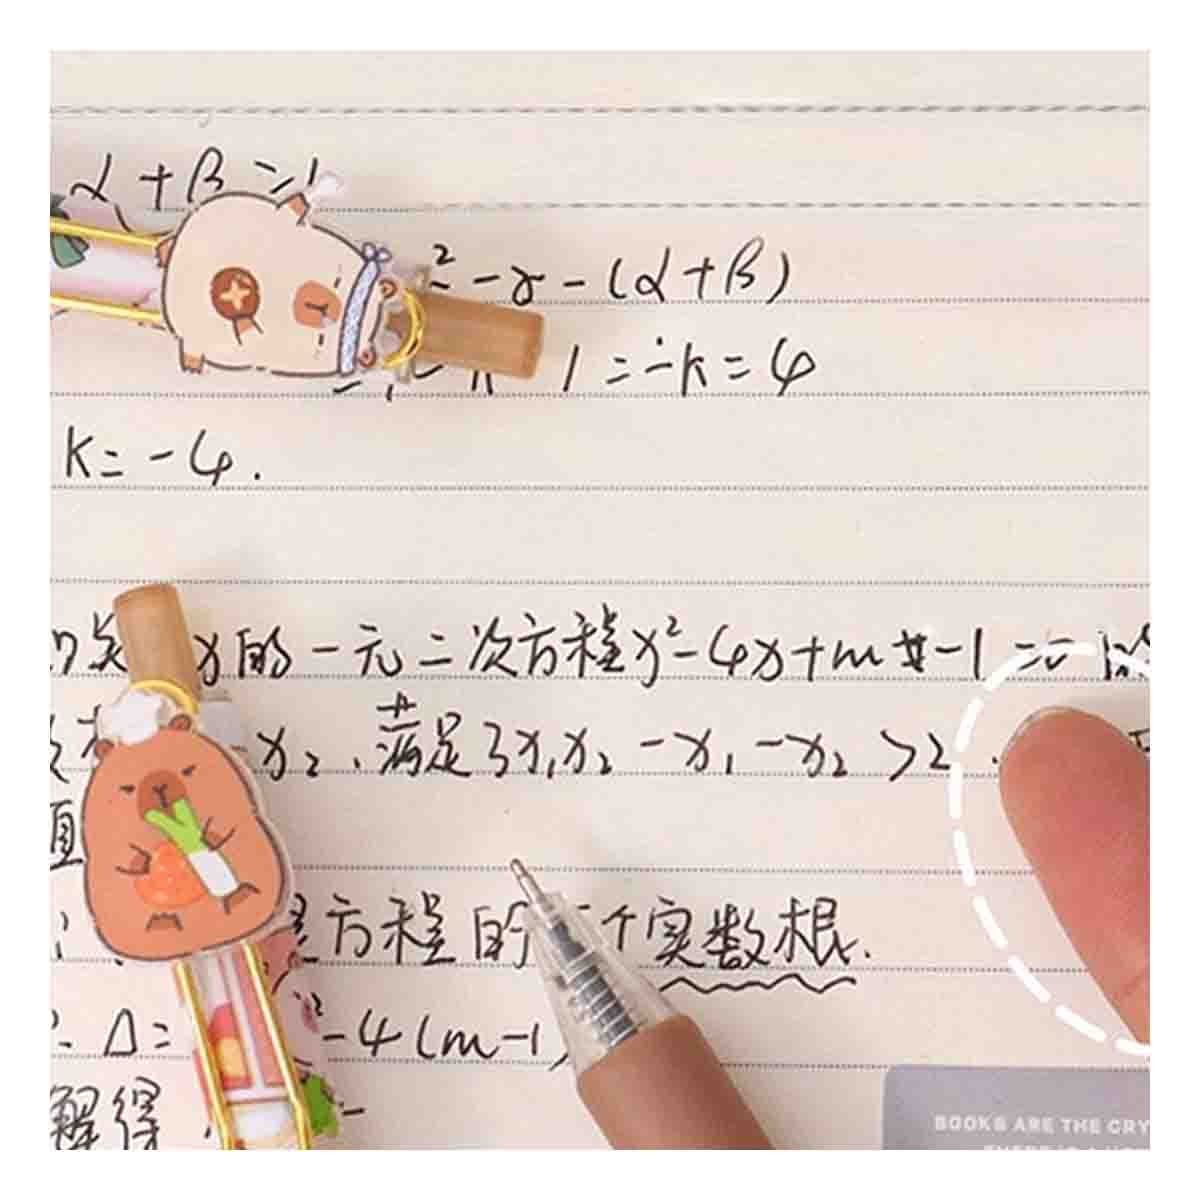 α+β=1
²-γ-(α+β)
1=-k=4
k=-4.
x的一元二次方程x²-4x+m-1=0
x₂,满足3x₁x₂-x₁-x₂>2.
直
方程的 个实数根.
Δ= ²-4(m-1)
解得
BOOKS ARE THE CRY